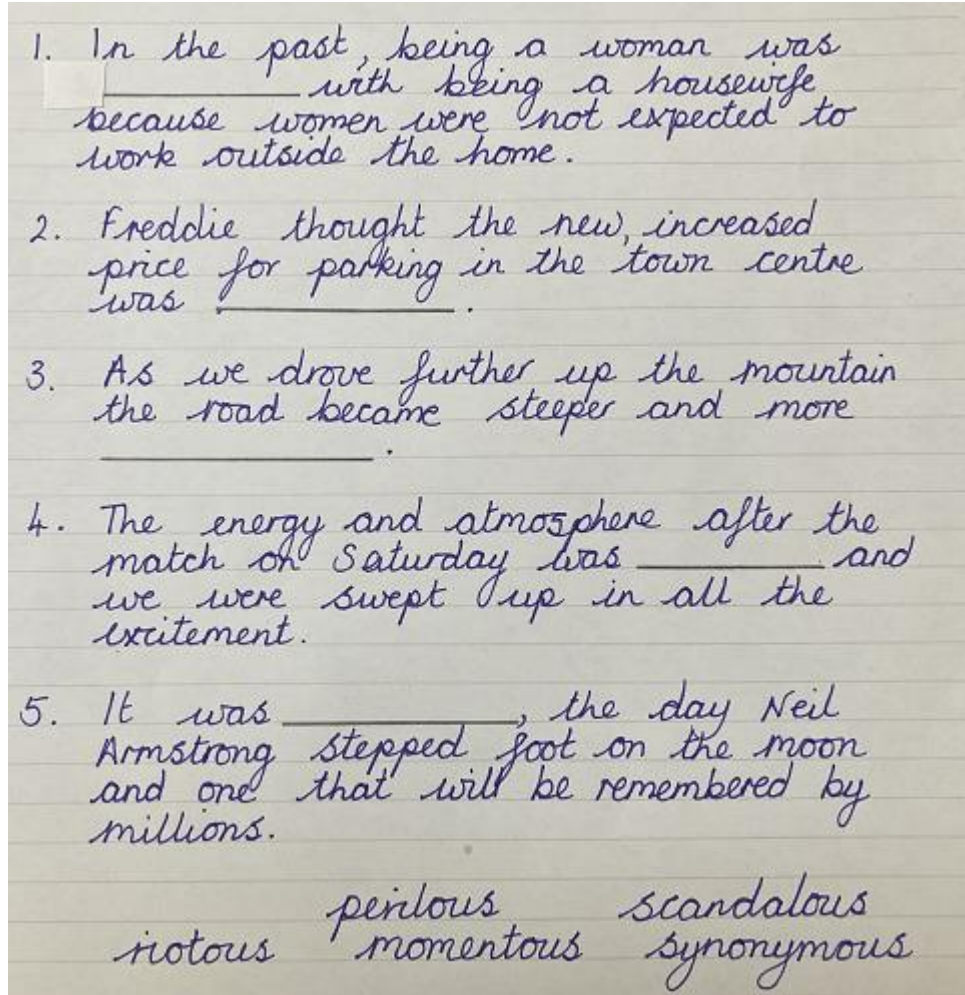 1. In the past, being a woman was
__________ with being a housewife
because women were not expected to
work outside the home.
2. Freddie thought the new, increased
price for parking in the town centre
was __________.
3. As we drove further up the mountain
the road became steeper and more
__________.
4. The energy and atmosphere after the
match on Saturday was __________ and
we were swept up in all the
excitement.
5. It was __________, the day Neil
Armstrong stepped foot on the moon
and one that will be remembered by
millions.
perilous scandalous
riotous momentous synonymous